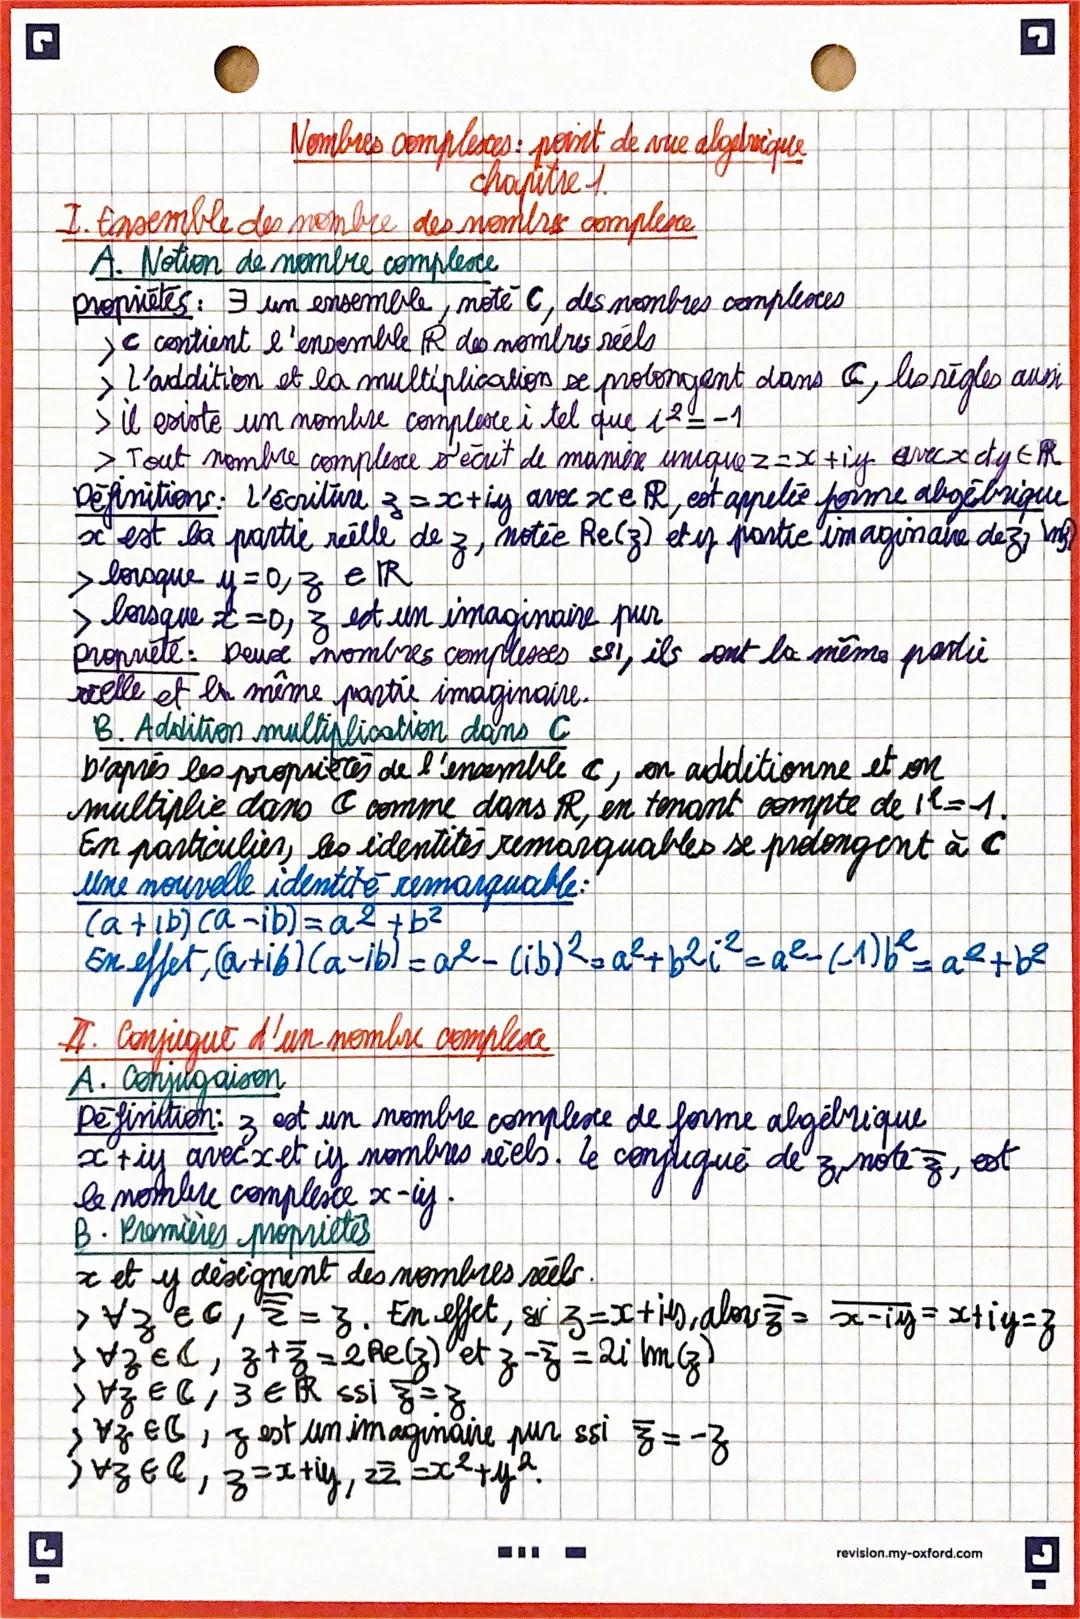 Nombres complexes : point de vue algébrique
chapitre 1.
I. Ensemble des nombre des nombres complexe
A. Notion de nombre complexe
propriétés : ∃ un ensemble, noté C, des nombres complexes
> C contient l'ensemble ℝ des nombres réels
> L'addition et la multiplication se prolongent dans ℂ, les règles aussi
> il existe un nombre complexe i tel que i² = -1
> Tout nombre complexe s'écrit de manière unique z = x + iy avec x et y ∈ ℝ
Définitions : L'écriture z = x + iy avec x ∈ ℝ, est appelée forme algébrique
x est la partie réelle de z, notée Re(z) et y partie imaginaire de z, Im(z)
> lorsque y = 0, z ∈ ℝ
> lorsque x = 0, z est un imaginaire pur
propriété : Deux nombres complexes ssi, ils ont la même partie
réelle et la même partie imaginaire.
B. Addition multiplication dans C
D'après les propriétés de l'ensemble C, on additionne et on
multiplie dans ℂ comme dans ℝ, en tenant compte de i² = -1.
En particulier, les identités remarquables se prolongent à C
Une nouvelle identité remarquable :
(a + ib)(a - ib) = a² + b²
En effet, (a + ib)(a - ib) = a² - (ib)² = a² + b²i² = a² - (-1)b² = a² + b²
II. Conjugué d'un nombre complexe
A. Conjugaison
Définition : z est un nombre complexe de forme algébrique
x + iy avec x et iy nombres réels. Le conjugué de z, noté z̅, est
le nombre complexe x - iy.
B. Premières propriétés
x et y désignent des nombres réels.
> ∀z ∈ C, z̿ = z. En effet, si z = x + iy, alors z̿ = x̅-̅i̅y̅ = x + iy = z
> ∀z ∈ ℂ, z + z̅ = 2Re(z) et z - z̅ = 2i Im(z)
> ∀z ∈ ℂ, z ∈ ℝ ssi z̅ = z
> ∀z ∈ ℂ, z est un imaginaire pur ssi z̅ = -z
> ∀z ∈ ℂ, z = x + iy, zz̅ = x² + y².
revision.my-oxford.com